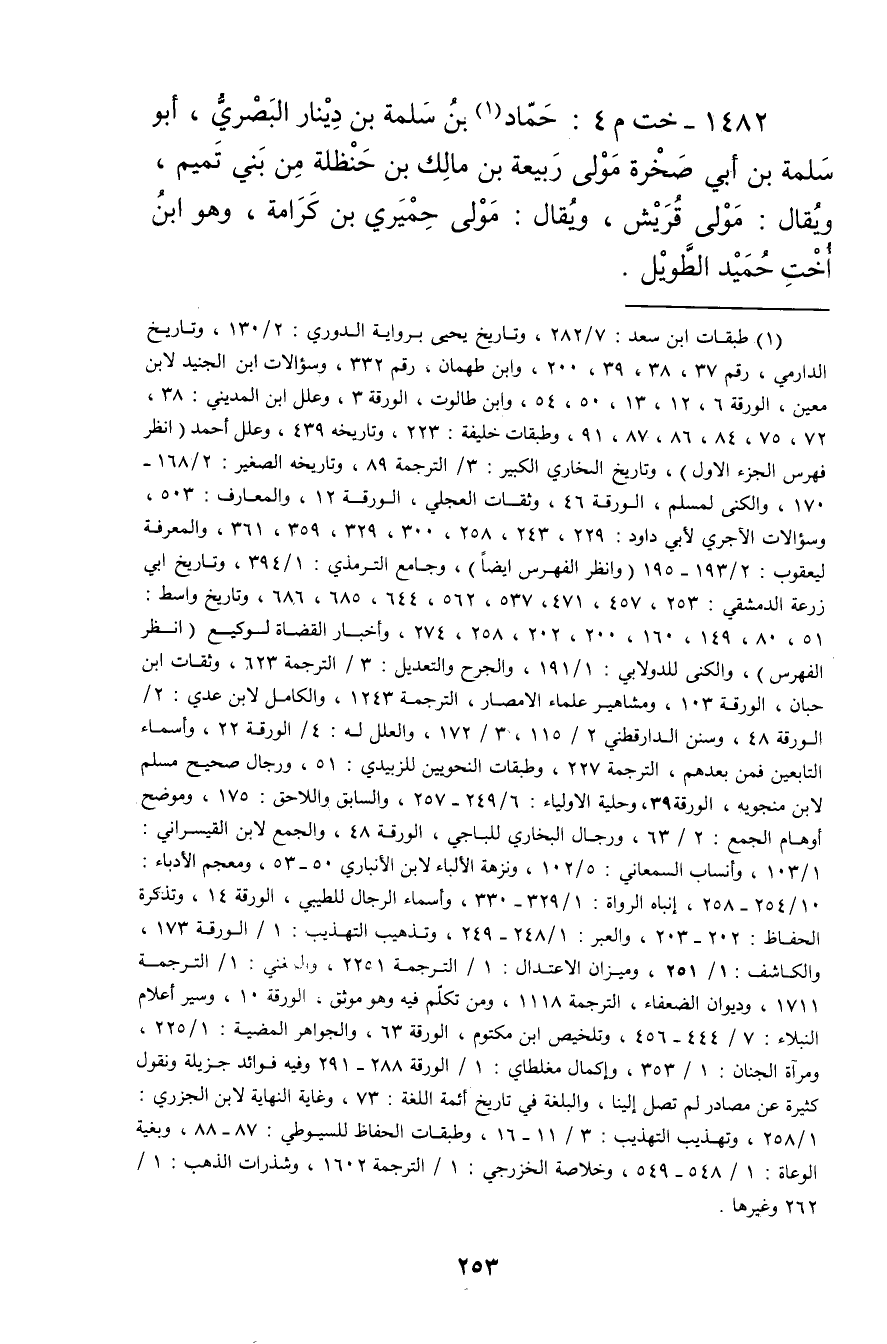 ١٤٨٢ ـ خت م ٤ : حَمّاد(١) بنُ سَلمة بن دِيْنار البَصْريُّ ، أبو
سَلمة بن أبي صَخْرة مَوْلى رَبيعة بن مالِك بن حَنْظلة مِن بَني تَميم ،
ويُقال : مَوْلى قُرَيْش ، ويُقال : مَوْلى حِمْيَري بن كَرَامة ، وهو ابنُ
أُخْتِ حُمَيْد الطَّوِيْل .
(١) طبقـات ابن سعد : ٧/ ٢٨٢ ، وتـاريخ يحيى بـرواية الـدوري : ٢/ ١٣٠ ، وتـاريـخ
الدارمي ، رقم ٣٧ ، ٣٨ ، ٣٩ ، ٢٠٠ ، وابن طهمان ، رقم ٣٣٢ ، وسؤالات ابن الجنيد لابن
معين ، الورقة ٦ ، ١٢ ، ١٣ ، ٥٠ ، ٥٤ ، وابن طالوت ، الورقة ٣ ، وعلل ابن المديني : ٣٨ ،
٧٢ ، ٧٥ ، ٨٤ ، ٨٦ ، ٨٧ ، ٩١ ، وطبقات خليفة : ٢٢٣ ، وتاريخه ٤٣٩ ، وعلل أحمد ( انظر
فهرس الجزء الاول ) ، وتاريخ البخاري الكبير : ٣/ الترجمة ٨٩ ، وتاريخه الصغير : ٢/ ١٦٨ ـ
١٧٠ ، والكنى لمسلم ، الـورقـة ٤٦ ، وثقـات العجلي ، الـورقـة ١٢ ، والمعـارف : ٥٠٣ ،
وسؤالات الآجري لأبي داود : ٢٢٩ ، ٢٤٣ ، ٢٥٨ ، ٣٠٠ ، ٣٢٩ ، ٣٥٩ ، ٣٦١ ، والمعرفـة
ليعقوب : ٢/ ١٩٣ ـ ١٩٥ ( وانظر الفهـرس ايضاً ) ، وجـامع التـرمذي : ١/ ٣٩٤ ، وتـاريخ ابي
زرعة الدمشقي : ٢٥٣ ، ٤٥٧ ، ٤٧١ ، ٥٣٧ ، ٥٦٢ ، ٦٤٤ ، ٦٨٥ ، ٦٨٦ ، وتاريخ واسط :
٥١ ، ٨٠ ، ١٤٩ ، ١٦٠ ، ٢٠٠ ، ٢٠٢ ، ٢٥٨ ، ٢٧٤ ، وأخبـار القضـاة لـوكيـع ( انـظر
الفهرس ) ، والكنى للدولابي : ١/ ١٩١ ، والجرح والتعديل : ٣ / الترجمة ٦٢٣ ، وثقـات ابن
حبان ، الورقـة ١٠٣ ، ومشاهيـر علماء الامصـار ، الترجمـة ١٢٤٣ ، والكامـل لابن عدي : ٢/
الـورقة ٤٨ ، وسنن الـدارقطني ٢ / ١١٥ ، ٣ / ١٧٢ ، والعلل لـه : ٤/ الورقـة ٢٢ ، وأسمـاء
التابعين فمن بعدهم ، الترجمة ٢٢٧ ، وطبقات النحويين للزبيدي : ٥١ ، ورجال صحيح مسلم
لابن منجويه ، الورقة ٣٩، وحلية الاولياء : ٦/ ٢٤٩ ـ ٢٥٧ ، والسابق واللاحق : ١٧٥ ، وموضح
أوهـام الجمع : ٢ / ٦٣ ، ورجـال البخاري للبـاجي ، الورقـة ٤٨ ، والجمع لابن القيسـراني :
١/ ١٠٣ ، وأنساب السمعاني : ٥/ ١٠٢ ، ونزهة الألباء لابن الأنباري ٥٠ ـ ٥٣ ، ومعجم الأدباء :
١٠/ ٢٥٤ ـ ٢٥٨ ، إنباه الرواة : ١/ ٣٢٩ ـ ٣٣٠ ، وأسماء الرجال للطيبي ، الورقة ١٤ ، وتذكرة
الحفـاظ : ٢٠٢ ـ ٢٠٣ ، والعبر : ١/ ٢٤٨ ـ ٢٤٩ ، وتـذهيب التهـذيب : ١ / الـورقـة ١٧٣ ،
والكـاشف : ١/ ٢٥١ ، وميـزان الاعتـدال : ١ / الترجمـة ٢٢٥١ ، والمغني : ١/ التـرجمـة
١٧١١ ، وديوان الضعفاء ، الترجمة ١١١٨ ، ومن تكلّم فيه وهو موثق ، الورقة ١٠ ، وسير أعلام
النبلاء : ٧ / ٤٤٤ ـ ٤٥٦ ، وتلخيص ابن مكتوم ، الورقة ٦٣ ، والجواهر المضية : ١/ ٢٢٥ ،
ومرآة الجنان : ١ / ٣٥٣ ، وإكمال مغلطاي : ١ / الورقة ٢٨٨ ـ ٢٩١ وفيه فـوائد جـزيلة ونقول
كثيرة عن مصادر لم تصل إلينا ، والبلغة في تاريخ أئمة اللغة : ٧٣ ، وغاية النهاية لابن الجزري :
١/ ٢٥٨ ، وتهـذيب التهذيب : ٣ / ١١ ـ ١٦ ، وطبقات الحفاظ للسيـوطي : ٨٧ ـ ٨٨ ، وبغية
الوعاة : ١ / ٥٤٨ ـ ٥٤٩ ، وخلاصة الخزرجي : ١ / الترجمة ١٦٠٢ ، وشذرات الذهب : ١ /
٢٦٢ وغيرها .
٢٥٣